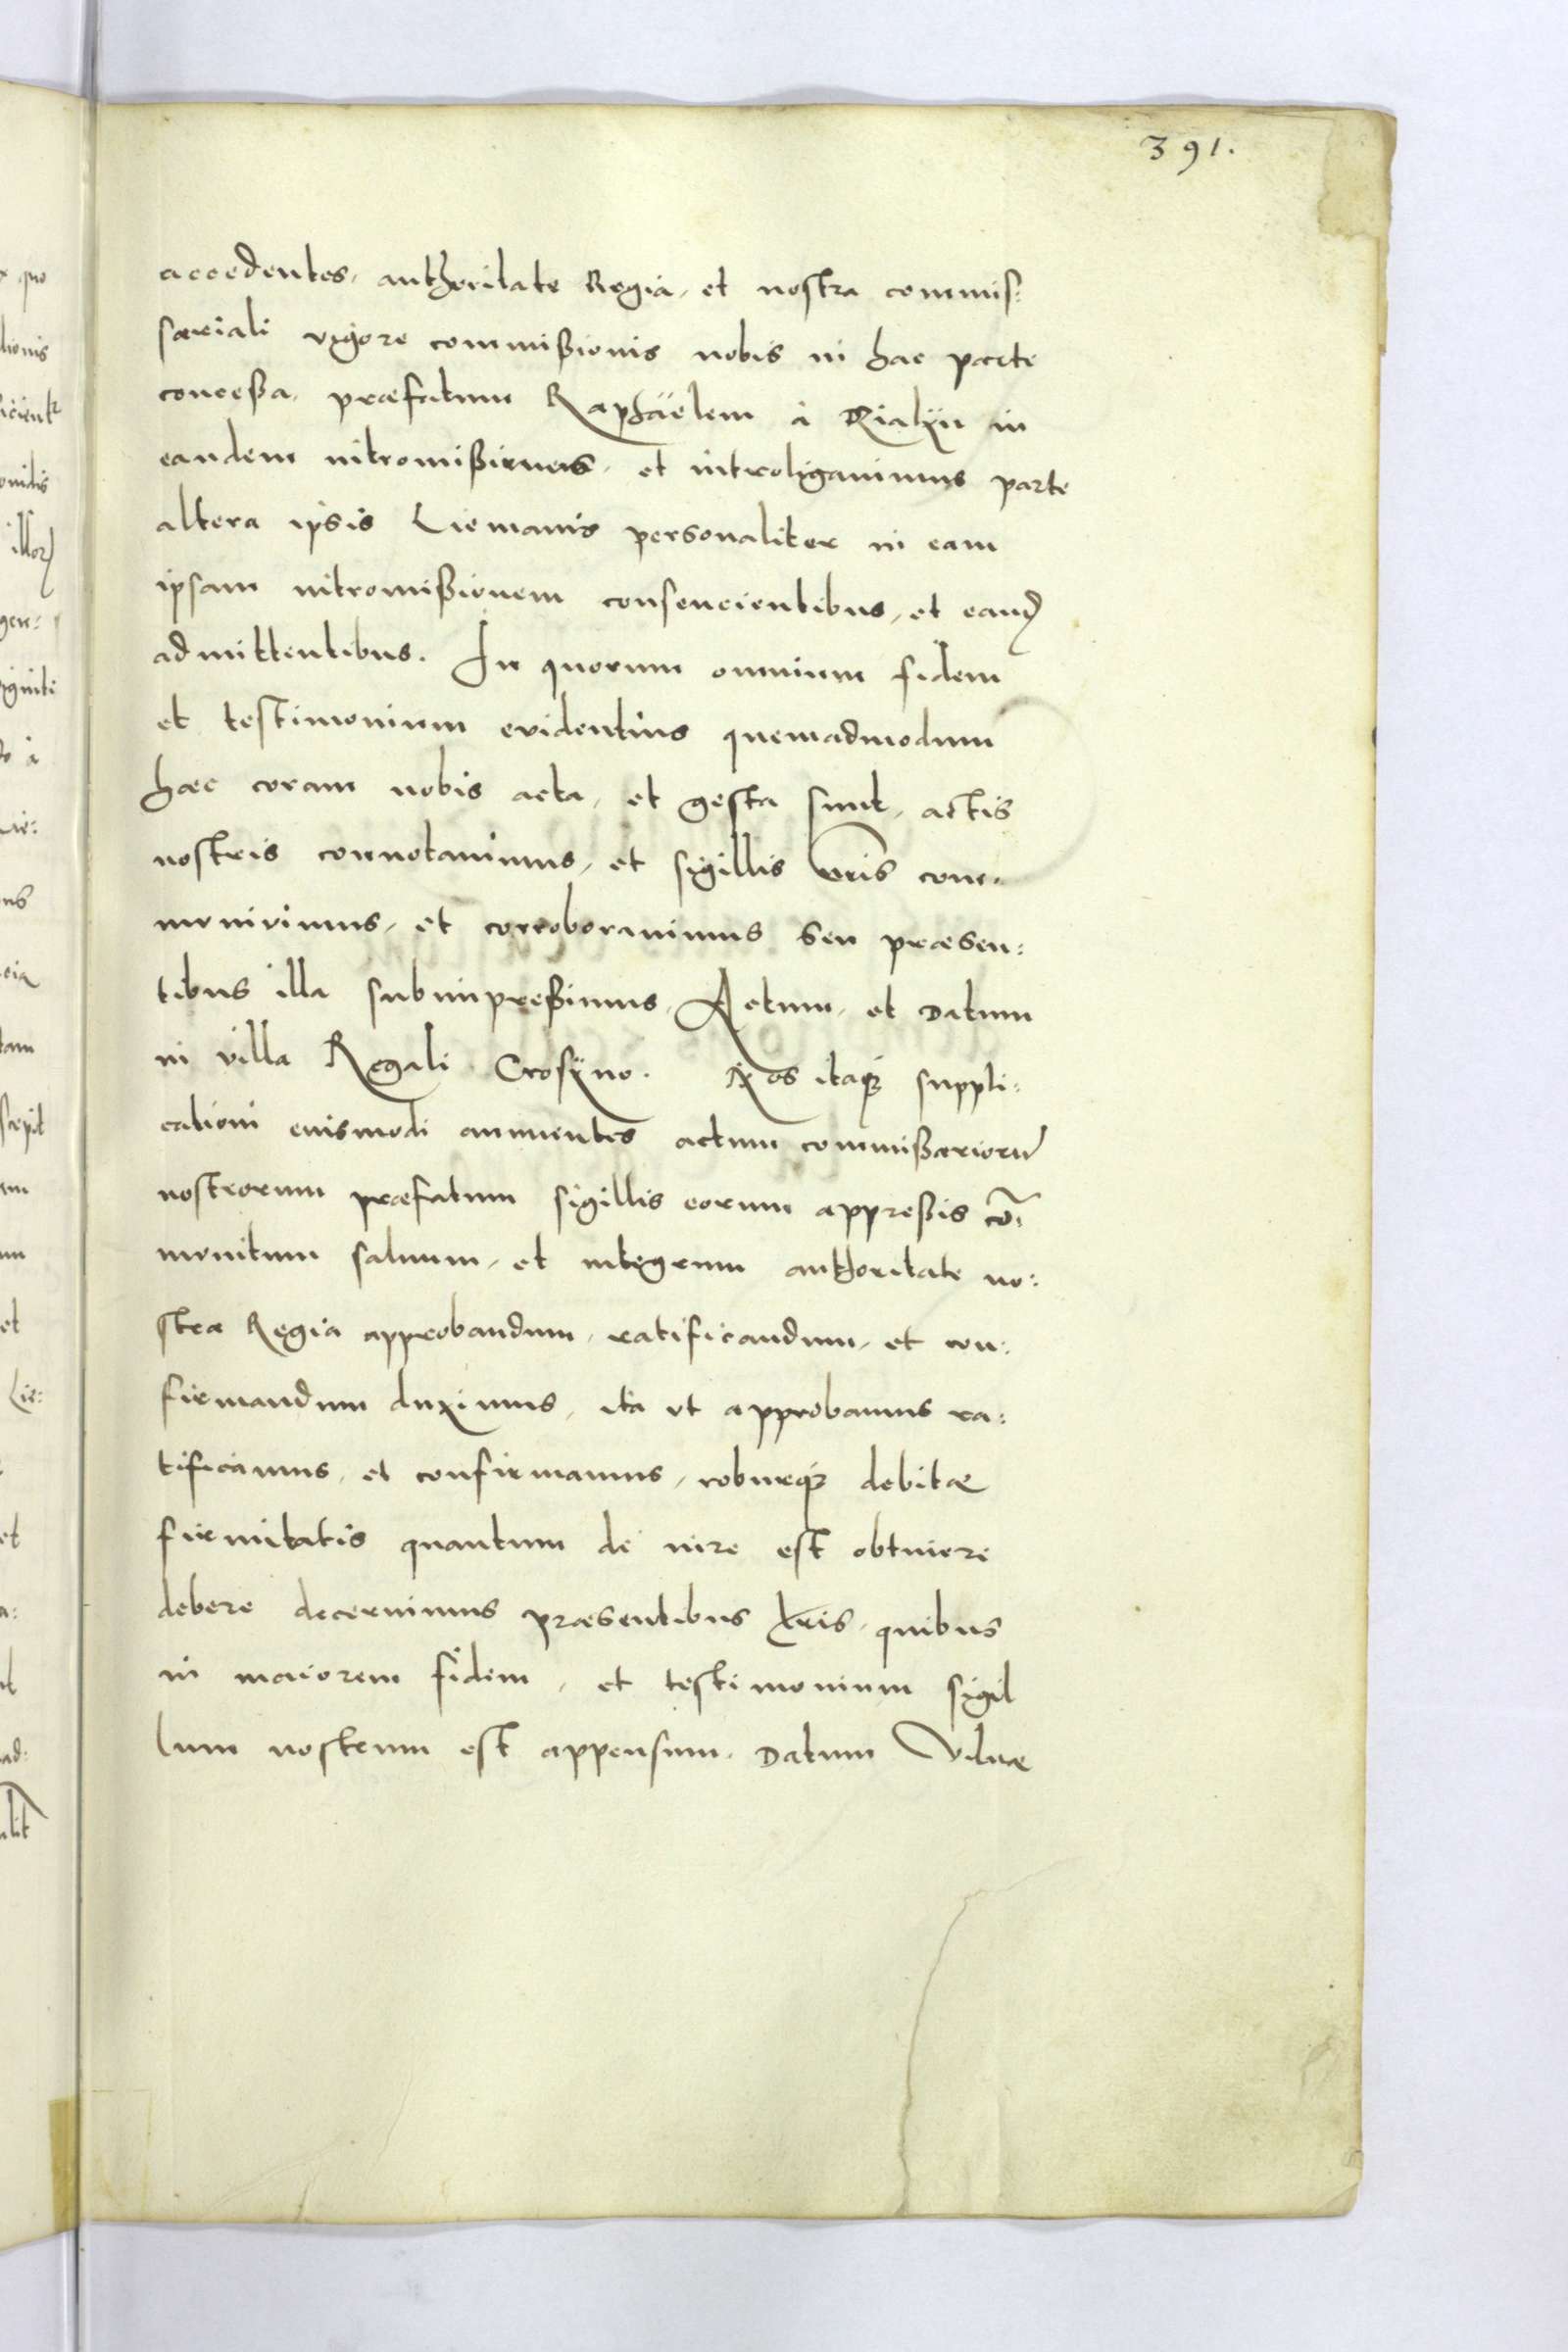 391.
accedentes, authoritate Regia, et nostra commis:
sariali vigore commißionis nobis in hac parte
conceßa, præfatum Raphaëlem à Dialÿn in
eandem intromißimus, et introligavimus parte
altera ipsis Licmanis personaliter in eam
ipsam intromißionem consencientibus, et eand
admittentibus. In quorum omnium fidem
et testimonium evidentius quemadmodum
hæc coram nobis acta, et gesta sunt, actis
nostris connotavimus, et sigillis nris com:
munivimus, et corroboravimus seu præsen:
tibus illa subimpreßimus, Actum, et Datum
in villa Regali Crosÿno. Nos itaq suppli:
cationi eiusmodi annuentes actum commißariorū
nostrorum præfatum sigillis eorum appreßis cō:
munitum saluum, et integrum authoritate no:
stra Regia approbandum, ratificandum, et con:
firmandum duximus, ita ut approbamus ra:
tificamus, et confirmamus, roburq debitæ
firmitatis quantum de iure est obtinere
debere decernimus præsentibus lris, quibus
in maiorem fidem, et testimonium sigil
lum nostrum est appensum. Datum Vilnæ